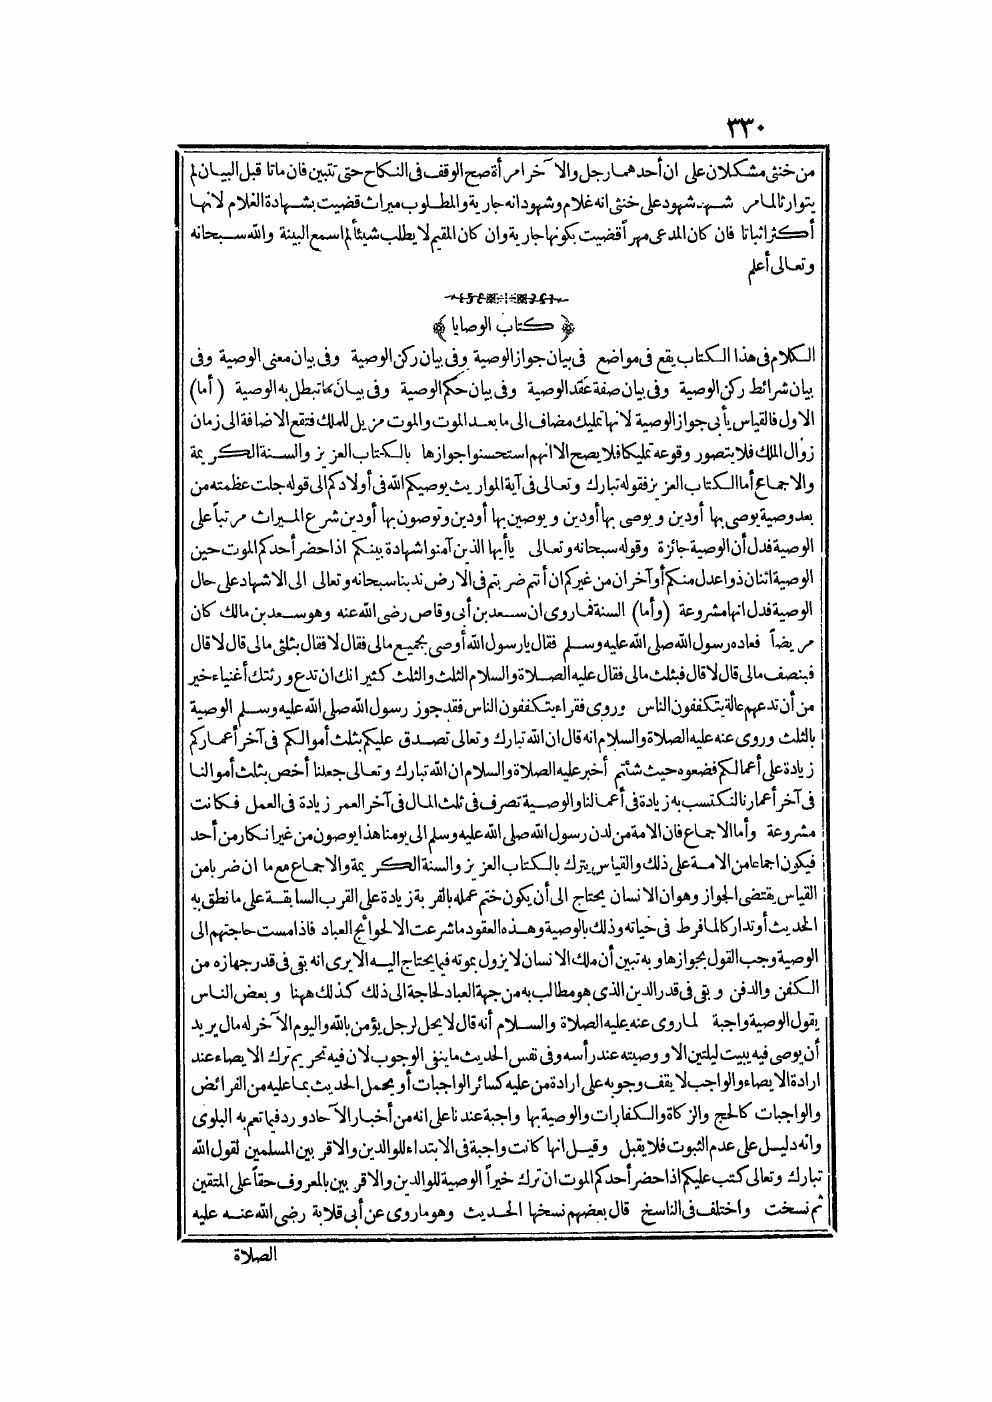 ٣٣٠
من خنثى مشكلان على ان أحدهما رجل والآخر امرأة صح الوقف فى النكاح حتى تتبين فان ماتا قبل البيان لم
يتوارثا لما مر شهد شهود على خنثى انه غلام وشهود انه جارية والمطلوب ميراث قضيت بشهادة الغلام لانها
أكثر اثباتا فان كان المدعى مهرا قضيت بكونها جارية وان كان المقيم لا يطلب شيئا لم اسمع البينة والله سبحانه
وتعالى أعلم
﴿ كتاب الوصايا ﴾
الكلام فى هذا الكتاب يقع فى مواضع فى بيان جواز الوصية وفى بيان ركن الوصية وفى بيان معنى الوصية وفى
بيان شرائط ركن الوصية وفى بيان صفة عقد الوصية وفى بيان حكم الوصية وفى بيان ما تبطل به الوصية (أما)
الاول فالقياس يأبى جواز الوصية لانها تمليك مضاف الى ما بعد الموت والموت مزيل للملك فتقع الاضافة الى زمان
زوال الملك فلا يتصور وقوعه تمليكا فلا يصح الا انهم استحسنوا جوازها بالكتاب العزيز والسنة الكريمة
والاجماع أما الكتاب العزيز فقوله تبارك وتعالى فى آية المواريث يوصيكم الله فى أولادكم الى قوله جلت عظمته من
بعد وصية يوصى بها أودين ويوصى بها أودين ويوصين بها أودين وتوصون بها أودين شرع الميراث مرتباً على
الوصية فدل أن الوصية جائزة وقوله سبحانه وتعالى ياأيها الذين آمنوا شهادة بينكم اذا حضر أحدكم الموت حين
الوصية اثنان ذوا عدل منكم أو آخران من غيركم ان أنتم ضربتم فى الارض ندبنا سبحانه وتعالى الى الاشهاد على حال
الوصية فدل انها مشروعة (وأما) السنة فما روى ان سعد بن أبى وقاص رضى الله عنه وهو سعد بن مالك كان
مريضاً فعاده رسول الله صلى الله عليه وسلم فقال يا رسول الله أوصى بجميع مالى فقال لا فقال بثلثى مالى قال لا قال
فبنصف مالى قال لا قال فبثلث مالى فقال عليه الصلاة والسلام الثلث والثلث كثير انك ان تدع ورثتك أغنياء خير
من أن تدعهم عالة يتكففون الناس وروى فقراء يتكففون الناس فقد جوز رسول الله صلى الله عليه وسلم الوصية
بالثلث وروى عنه عليه الصلاة والسلام انه قال ان الله تبارك وتعالى تصدق عليكم بثلث أموالكم فى آخر أعماركم
زيادة على أعمالكم فضعوه حيث شئتم أخبر عليه الصلاة والسلام ان الله تبارك وتعالى جعلنا أخص بثلث أموالنا
فى آخر أعمارنا لنكتسب به زيادة فى أعمالنا والوصية تصرف فى ثلث المال فى آخر العمر زيادة فى العمل فكانت
مشروعة وأما الاجماع فان الامة من لدن رسول الله صلى الله عليه وسلم الى يومنا هذا يوصون من غير انكار من أحد
فيكون اجماعا من الامة على ذلك والقياس يترك بالكتاب العزيز والسنة الكريمة والاجماع مع ما ان ضربا من
القياس يقتضى الجواز وهو ان الانسان يحتاج الى أن يكون ختم عمله بالقربة زيادة على القرب السابقة على ما نطق به
الحديث أو تداركا لما فرط فى حياته وذلك بالوصية وهذه العقود ما شرعت الا لحوائج العباد فاذا مست حاجتهم الى
الوصية وجب القول بجوازها وبه تبين أن ملك الانسان لا يزول بموته فيما يحتاج اليه الا يرى انه بقى فى قدر جهازه من
الكفن والدفن وبقى فى قدر الدين الذى هو مطالب به من جهة العباد لحاجة الى ذلك كذلك ههنا وبعض الناس
يقول الوصية واجبة لما روى عنه عليه الصلاة والسلام أنه قال لا يحل لرجل يؤمن بالله واليوم الآخر له مال يريد
أن يوصى فيه يبيت ليلتين الا ووصيته عند رأسه وفى نفس الحديث ما ينفى الوجوب لان فيه تحريم ترك الايصاء عند
ارادة الايصاء والواجب لا يقف وجوبه على ارادة من عليه كسائر الواجبات أو يحمل الحديث بما عليه من الفرائض
والواجبات كالحج والزكاة والكفارات والوصية بها واجبة عندنا على انه من أخبار الآحاد ورد فيما تعم به البلوى
وانه دليل على عدم الثبوت فلا يقبل وقيل انها كانت واجبة فى الابتداء للوالدين والاقربين المسلمين لقول الله
تبارك وتعالى كتب عليكم اذا حضر أحدكم الموت ان ترك خيراً الوصية للوالدين والاقربين بالمعروف حقاً على المتقين
ثم نسخت واختلف فى الناسخ قال بعضهم نسخها الحديث وهو ما روى عن أبى قلابة رضى الله عنه عليه
الصلاة